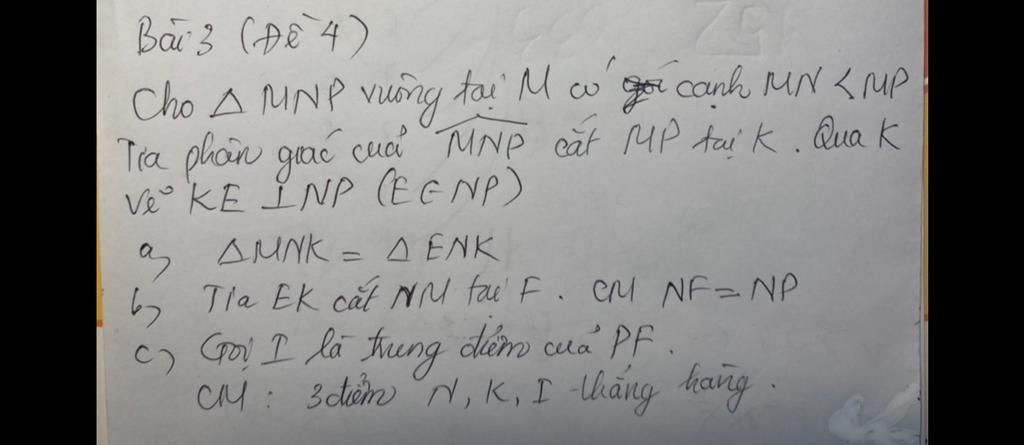 Bài 3 (Đề 4)
Cho △ MNP vuông tại M có cạnh MN < MP
Tia phân giác của MNP cắt MP tại K. Qua K
vẽ KE ⊥ NP (E ∈ NP)
a, △MNK = △ENK
b, Tia EK cắt NM tại F. CM NF = NP
c, Gọi I là trung điểm của PF.
CM: 3 điểm N, K, I thẳng hàng.